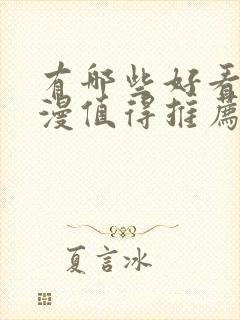 有哪些好看
漫值得推薦
夏言冰